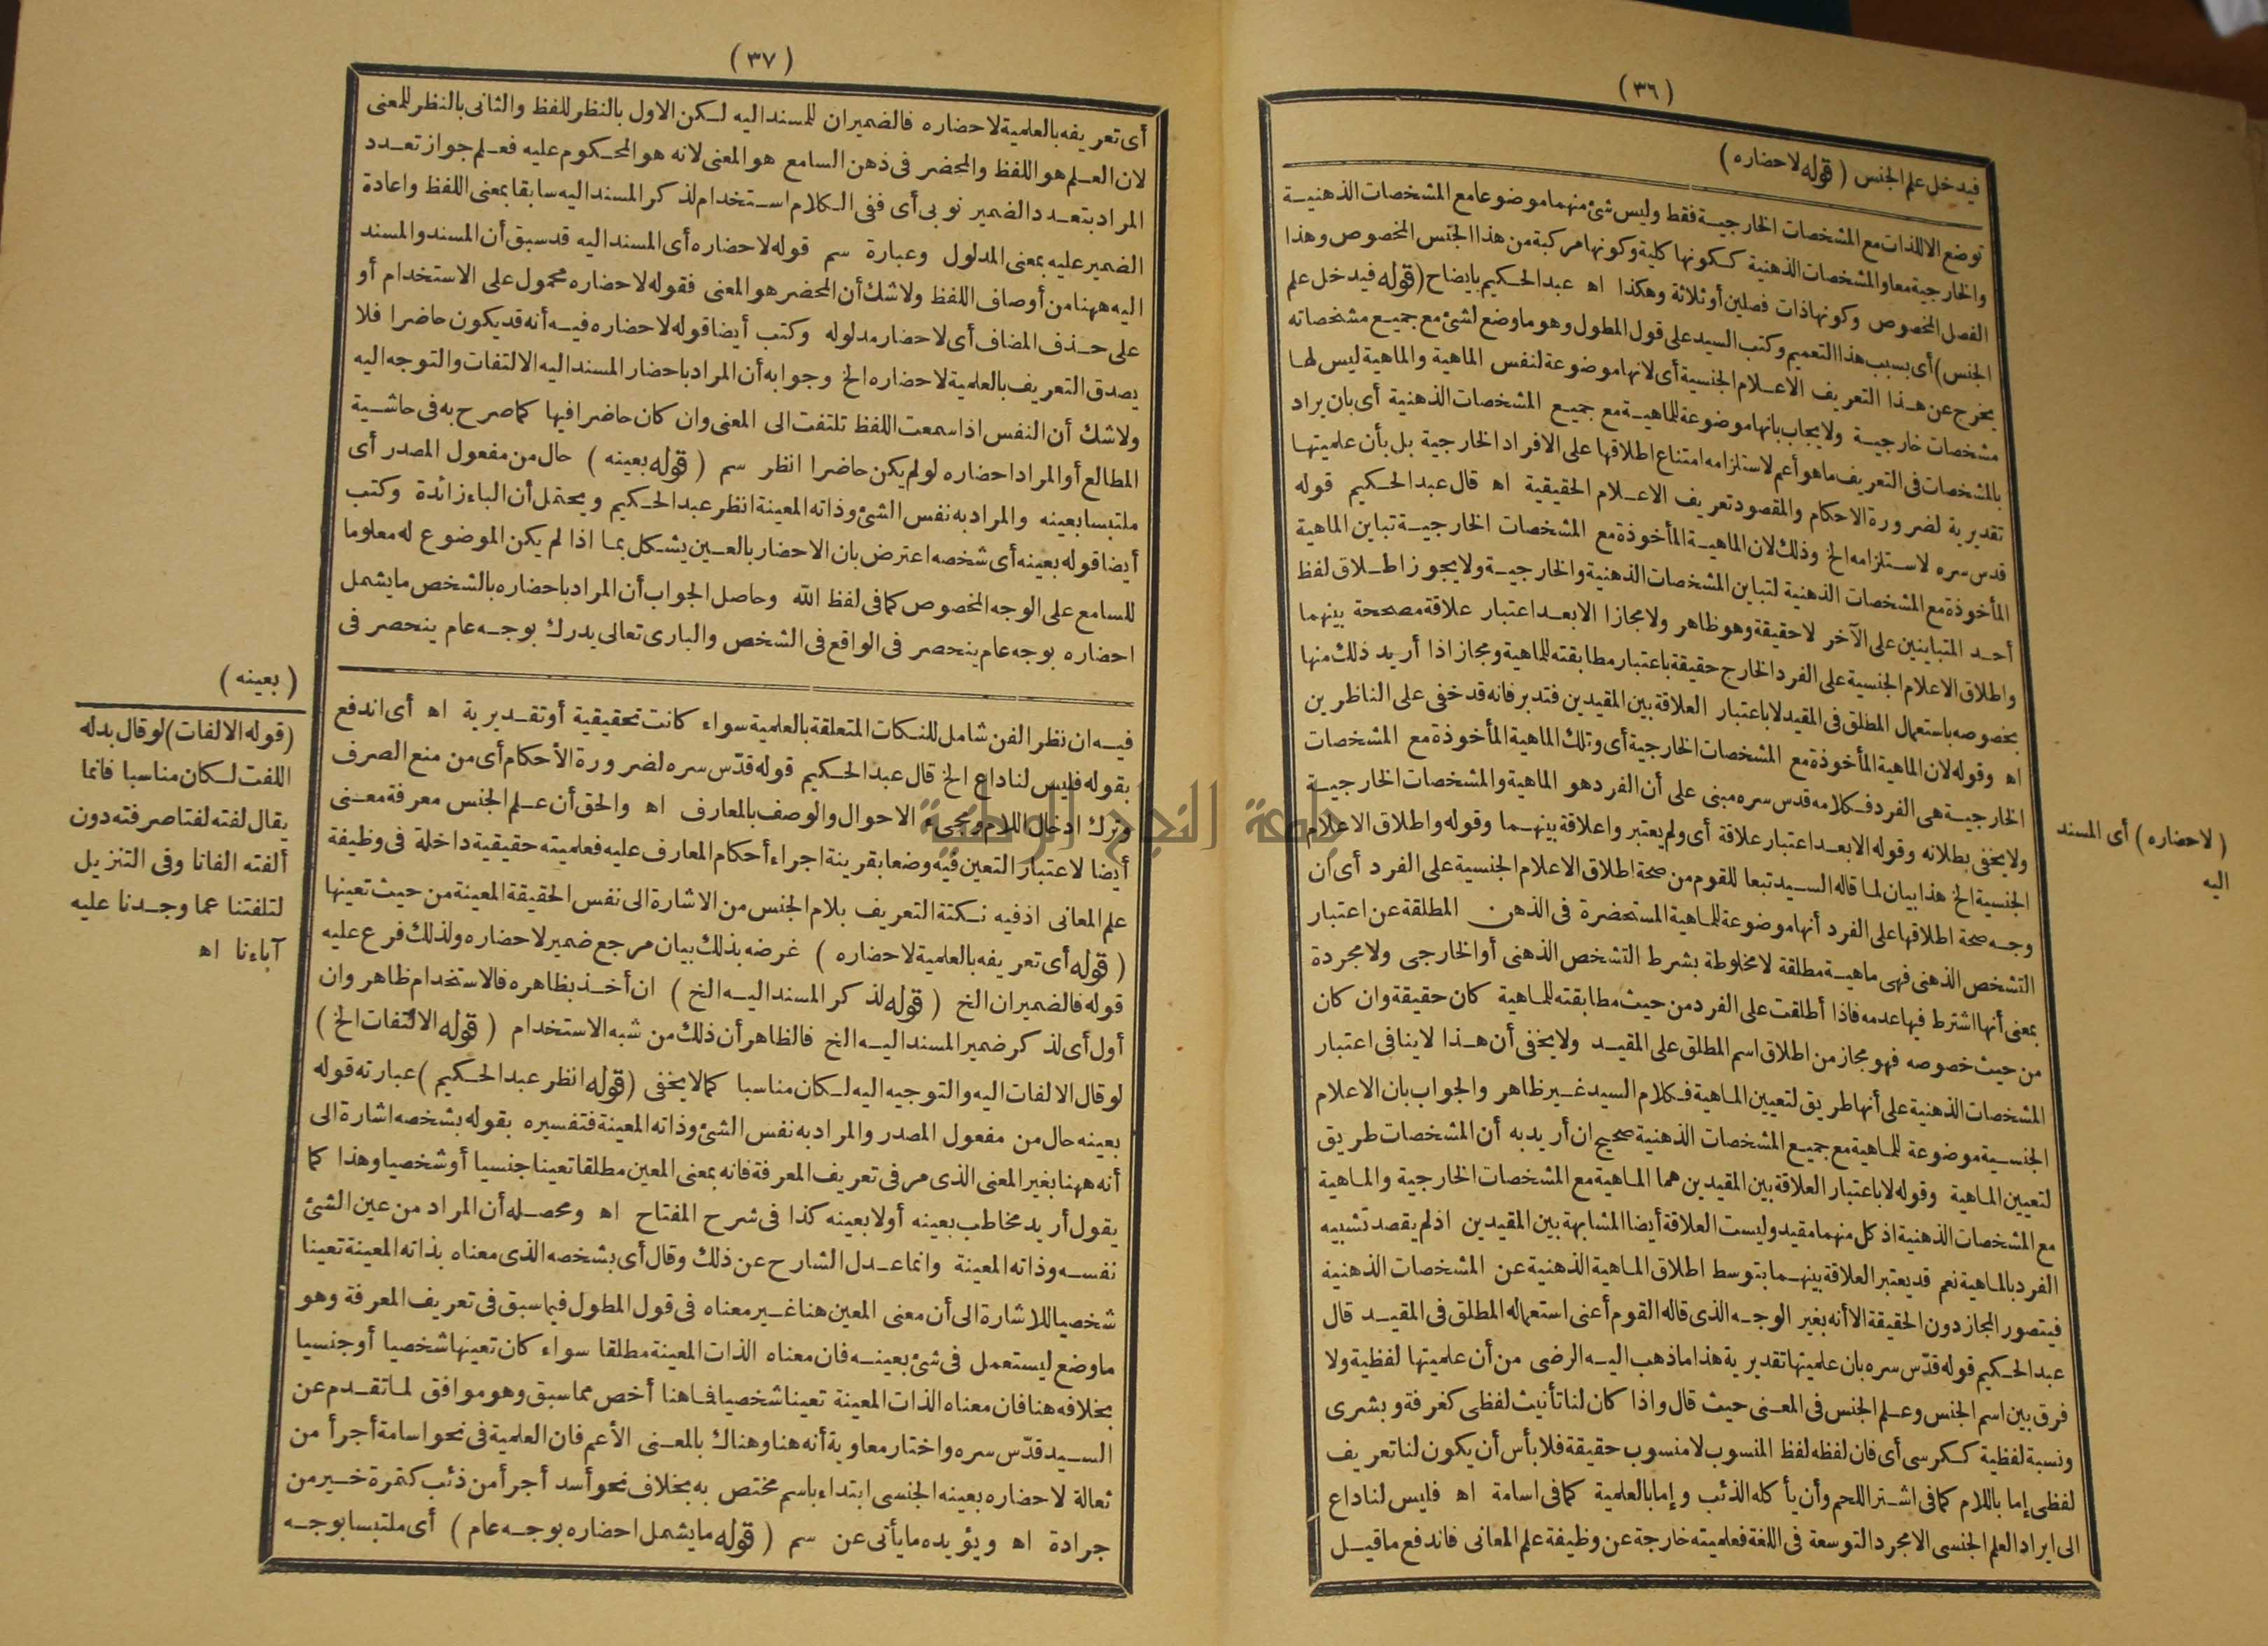 (٣٦)
فيدخل علم الجنس (قوله لاحضاره)
توضع الا للذات مع المشخصات الخارجية فقط وليس شئ منهما موضوعا مع المشخصات الذهنية
والخارجية معا والمشخصات الذهنية ككونها كلية وكونها مركبة من هذا الجنس المخصوص وهذا
الفصل المخصوص وكونها ذات فصلين أو ثلاثة وهكذا اه عبد الحكيم بايضاح (قوله فيدخل علم
الجنس) أى بسبب هذا التعميم وكتب السيد على قول المطول وهو ما وضع لشئ مع جميع مشخصاته
يخرج عن هذا التعريف الاعلام الجنسية أى لانها موضوعة لنفس الماهية والماهية ليس لها
مشخصات خارجية ولا يجاب بانها موضوعة للماهية مع جميع المشخصات الذهنية أى بان يراد
بالمشخصات فى التعريف ما هو أعم لاستلزامه امتناع اطلاقها على الافراد الخارجية بل بأن علميتها
تقديرية لضرورة الاحكام والمقصود تعريف الاعلام الحقيقية اه قال عبد الحكيم قوله
قدس سره لاستلزامه الخ وذلك لان الماهية المأخوذة مع المشخصات الخارجية تباين الماهية
المأخوذة مع المشخصات الذهنية لتباين المشخصات الذهنية والخارجية ولا يجوز اطلاق لفظ
أحد المتباينين على الآخر لا حقيقة وهو ظاهر ولا مجازا الا بعد اعتبار علاقة مصححة بينهما
واطلاق الاعلام الجنسية على الفرد الخارج حقيقة باعتبار مطابقته للماهية ومجاز اذا أريد ذلك منها
بخصوصه باستعمال المطلق فى المقيد لا باعتبار العلاقة بين المقيدين فتدبر فانه قد خفى على الناظرين
اه وقوله لان الماهية المأخوذة مع المشخصات الخارجية أى وتلك الماهية المأخوذة مع المشخصات
الخارجية هى الفرد فكلامه قدس سره مبنى على أن الفرد هو الماهية والمشخصات الخارجية
ولا يخفى بطلانه وقوله الا بعد اعتبار علاقة أى ولم يعتبر واعلاقة بينهما وقوله واطلاق الاعلام
الجنسية الخ هذا بيان لما قاله السيد تبعا للقوم من صحة اطلاق الاعلام الجنسية على الفرد أى ان
وجه صحة اطلاقها على الفرد أنها موضوعة للماهية المستحضرة فى الذهن المطلقة عن اعتبار
التشخص الذهنى فهى ماهية مطلقة لا مخلوطة بشرط التشخص الذهنى أو الخارجى ولا مجردة
بمعنى أنها اشترط فيها عدمه فاذا أطلقت على الفرد من حيث مطابقته للماهية كان حقيقة وان كان
من حيث خصوصه فهو مجاز من اطلاق اسم المطلق على المقيد ولا يخفى أن هذا لا ينافى اعتبار
المشخصات الذهنية على أنها طريق لتعيين الماهية فكلام السيد غير ظاهر والجواب بان الاعلام
الجنسية موضوعة للماهية مع جميع المشخصات الذهنية صحيح ان أريد به أن المشخصات طريق
لتعيين الماهية وقوله لا باعتبار العلاقة بين المقيدين هما الماهية مع المشخصات الخارجية والماهية
مع المشخصات الذهنية اذ كل منهما مقيد وليست العلاقة أيضا المشابهة بين المقيدين اذ لم يقصد تشبيه
الفرد بالماهية نعم قد يعتبر العلاقة بينهما بتوسط اطلاق الماهية الذهنية عن المشخصات الذهنية
فيتصور المجاز دون الحقيقة الا أنه بغير الوجه الذى قاله القوم أعنى استعماله المطلق فى المقيد قال
عبد الحكيم قوله قدّس سره بان علميتها تقديرية هذا ما ذهب اليه الرضى من أن علميتها لفظية ولا
فرق بين اسم الجنس وعلم الجنس فى المعنى حيث قال واذا كان لنا تأنيث لفظى كغرفة وبشرى
ونسبة لفظية ككرسى أى فان لفظه لفظ المنسوب لا منسوب حقيقة فلا بأس أن يكون لنا تعريف
لفظى إما باللام كما فى اشتر اللحم وأن يأكله الذئب وإما بالعلمية كما فى اسامة اه فليس لنا داع
الى ايراد العلم الجنسى الا مجرد التوسعة فى اللغة فعلميته خارجة عن وظيفة علم المعانى فاندفع ما قيل
(لاحضاره) أى المسند
اليه
(٣٧)
أى تعريفه بالعلمية لاحضاره فالضميران للمسند اليه لكن الاول بالنظر للفظ والثانى بالنظر للمعنى
لان العلم هو اللفظ والمحضر فى ذهن السامع هو المعنى لانه هو المحكوم عليه فعلم جواز تعدد
المراد بتعدد الضمير نوبى أى ففى الكلام استخدام لذكر المسند اليه سابقا بمعنى اللفظ واعادة
الضمير عليه بمعنى المدلول وعبارة سم قوله لاحضاره أى المسند اليه قد سبق أن المسند والمسند
اليه ههنا من أوصاف اللفظ ولا شك أن المحضر هو المعنى فقوله لاحضاره محمول على الاستخدام أو
على حذف المضاف أى لاحضار مدلوله وكتب أيضا قوله لاحضاره فيه أنه قد يكون حاضرا فلا
يصدق التعريف بالعلمية لاحضاره الخ وجوابه أن المراد باحضار المسند اليه الالتفات والتوجه اليه
ولا شك أن النفس اذا سمعت اللفظ تلتفت الى المعنى وان كان حاضرا فيها كما صرح به فى حاشية
المطالع أو المراد احضاره لو لم يكن حاضرا انظر سم (قوله بعينه) حال من مفعول المصدر أى
ملتبسا بعينه والمراد به نفس الشئ وذاته المعينة انظر عبد الحكيم ويحتمل أن الباء زائدة وكتب
أيضا قوله بعينه أى شخصه اعترض بان الاحضار بالعين يشكل بما اذا لم يكن الموضوع له معلوما
للسامع على الوجه المخصوص كما فى لفظ الله وحاصل الجواب أن المراد باحضاره بالشخص ما يشمل
احضاره بوجه عام ينحصر فى الواقع فى الشخص والبارى تعالى يدرك بوجه عام ينحصر فى
فيه ان نظر الفن شامل للنكات المتعلقة بالعلمية سواء كانت تحقيقية أو تقديرية اه أى اندفع
بقوله فليس لنا داع الخ قال عبد الحكيم قوله قدّس سره لضرورة الأحكام أى من منع الصرف
وترك ادخال اللام ومجىء الاحوال والوصف بالمعارف اه والحق أن علم الجنس معرفة معنى
أيضا لاعتبار التعين فيه وضعا بقرينة اجراء أحكام المعارف عليه فعلميته حقيقية داخلة فى وظيفة
علم المعانى اذ فيه نكتة التعريف بلام الجنس من الاشارة الى نفس الحقيقة المعينة من حيث تعينها
(قوله أى تعريفه بالعلمية لاحضاره) غرضه بذلك بيان مرجع ضمير لاحضاره ولذلك فرع عليه
قوله فالضميران الخ (قوله لذكر المسند اليه الخ) ان أخذ بظاهره فالاستخدام ظاهر وان
أول أى لذكر ضمير المسند اليه الخ فالظاهر أن ذلك من شبه الاستخدام (قوله الالتفات الخ)
لو قال الالفات اليه والتوجيه اليه لكان مناسبا كما لا يخفى (قوله انظر عبد الحكيم) عبارته قوله
بعينه حال من مفعول المصدر والمراد به نفس الشئ وذاته المعينة فتفسيره بقوله بشخصه اشارة الى
أنه ههنا بغير المعنى الذى مر فى تعريف المعرفة فانه بمعنى المعين مطلقا تعينا جنسيا أو شخصيا وهذا كما
يقول أريد مخاطب بعينه أو لا بعينه كذا فى شرح المفتاح اه ومحصله أن المراد من عين الشئ
نفسه وذاته المعينة وانما عدل الشارح عن ذلك وقال أى بشخصه الذى معناه بذاته المعينة تعينا
شخصيا للاشارة الى أن معنى المعين هنا غير معناه فى قول المطول فيما سبق فى تعريف المعرفة وهو
ما وضع ليستعمل فى شئ بعينه فان معناه الذات المعينة مطلقا سواء كان تعينها شخصيا أو جنسيا
بخلافه هنا فان معناه الذات المعينة تعينا شخصيا فما هنا أخص مما سبق وهو موافق لما تقدم عن
السيد قدّس سره واختار معاوية أنه هنا وهناك بالمعنى الأعم فان العلمية فى نحو اسامة أجرأ من
ثعالة لاحضاره بعينه الجنسى ابتداء باسم مختص به بخلاف نحو أسد أجرأ من ذئب كتمرة خير من
جرادة اه ويؤيده ما يأتى عن سم (قوله ما يشمل احضاره بوجه عام) أى ملتبسا بوجه
(بعينه)
(قوله الالفات) لو قال بدله
اللفت لكان مناسبا فانما
يقال لفته لفتا صرفته دون
ألفته الفاتا وفى التنزيل
لتلفتنا عما وجدنا عليه
آباءنا اه
جامعة النجاح الوطنية